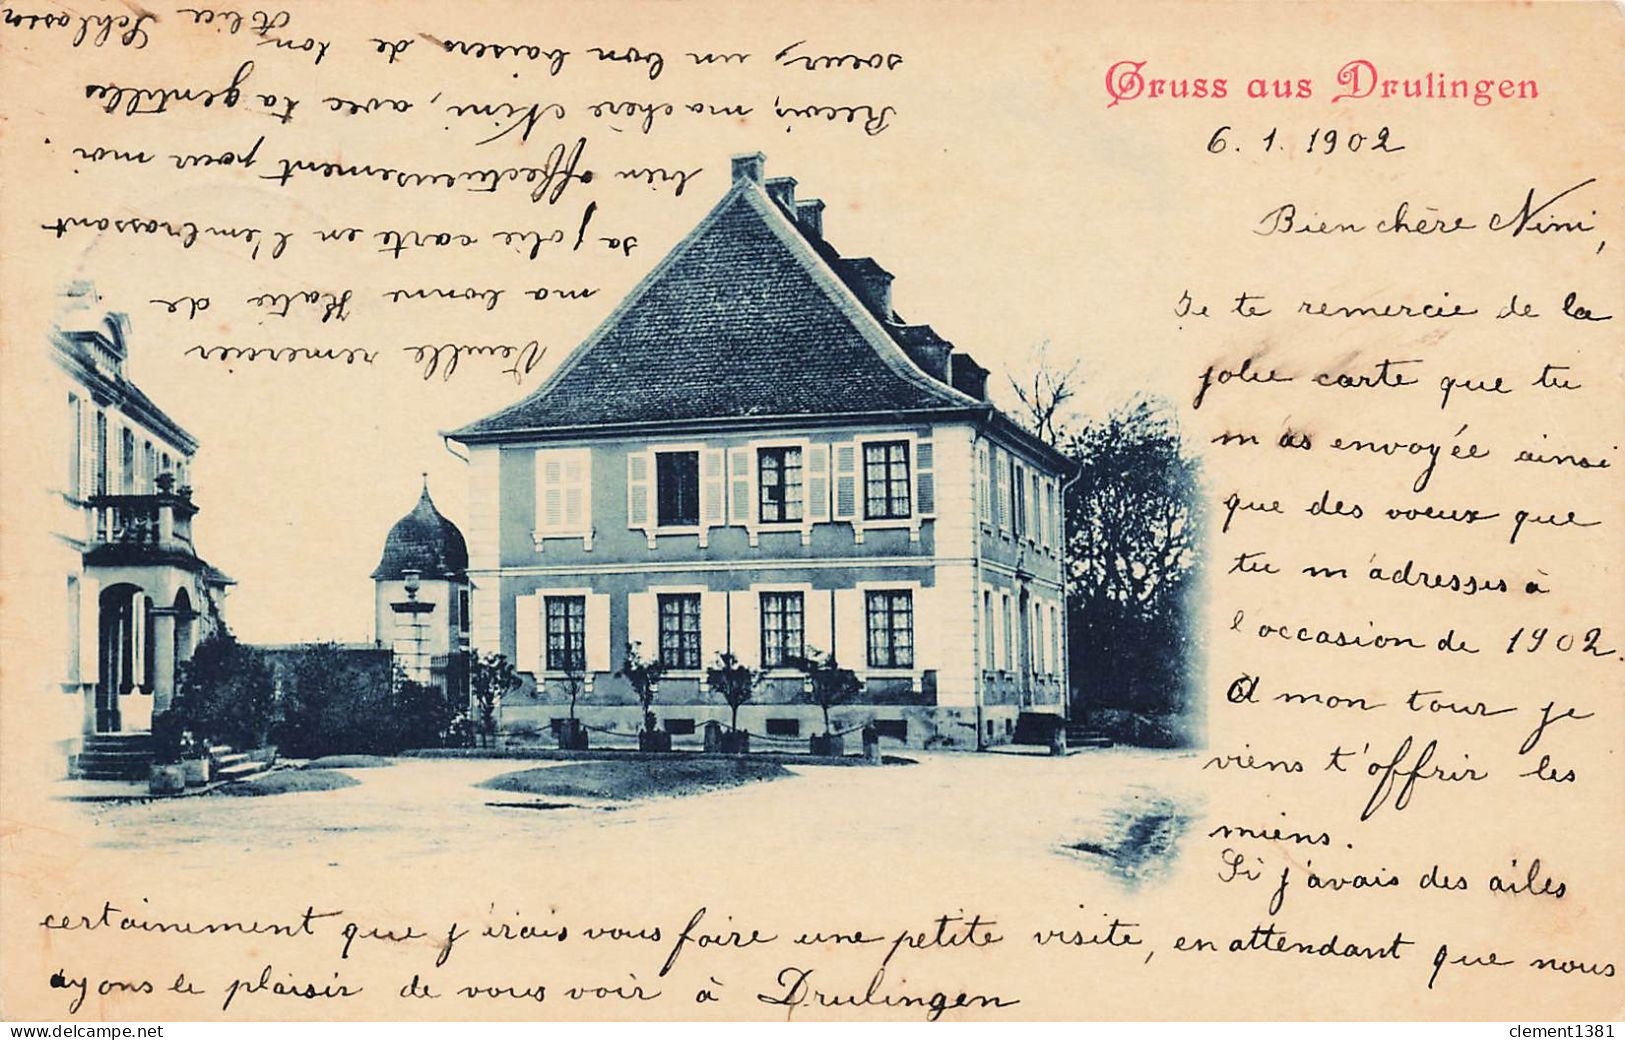 Gruss aus Drulingen
6. 1. 1902
Bien chère Nini,
Je te remercie de la
jolie carte que tu
m'as envoyée ainsi
que des voeux que
tu m'adresses à
l'occasion de 1902.
A mon tour je
viens t'offrir les
miens.
Si j'avais des ailes
certainement que j'irais vous faire une petite visite, en attendant que nous
ayons le plaisir de vous voir à Drulingen
Veuille remercier
ma bonne Katie de
sa jolie carte en l'embrassant
bien affectueusement pour moi.
Reçois, ma chère Nini, avec ta gentilles
soeur, un bon baisers de ton
Alice Schlosser
www.delcampe.net
clement1381